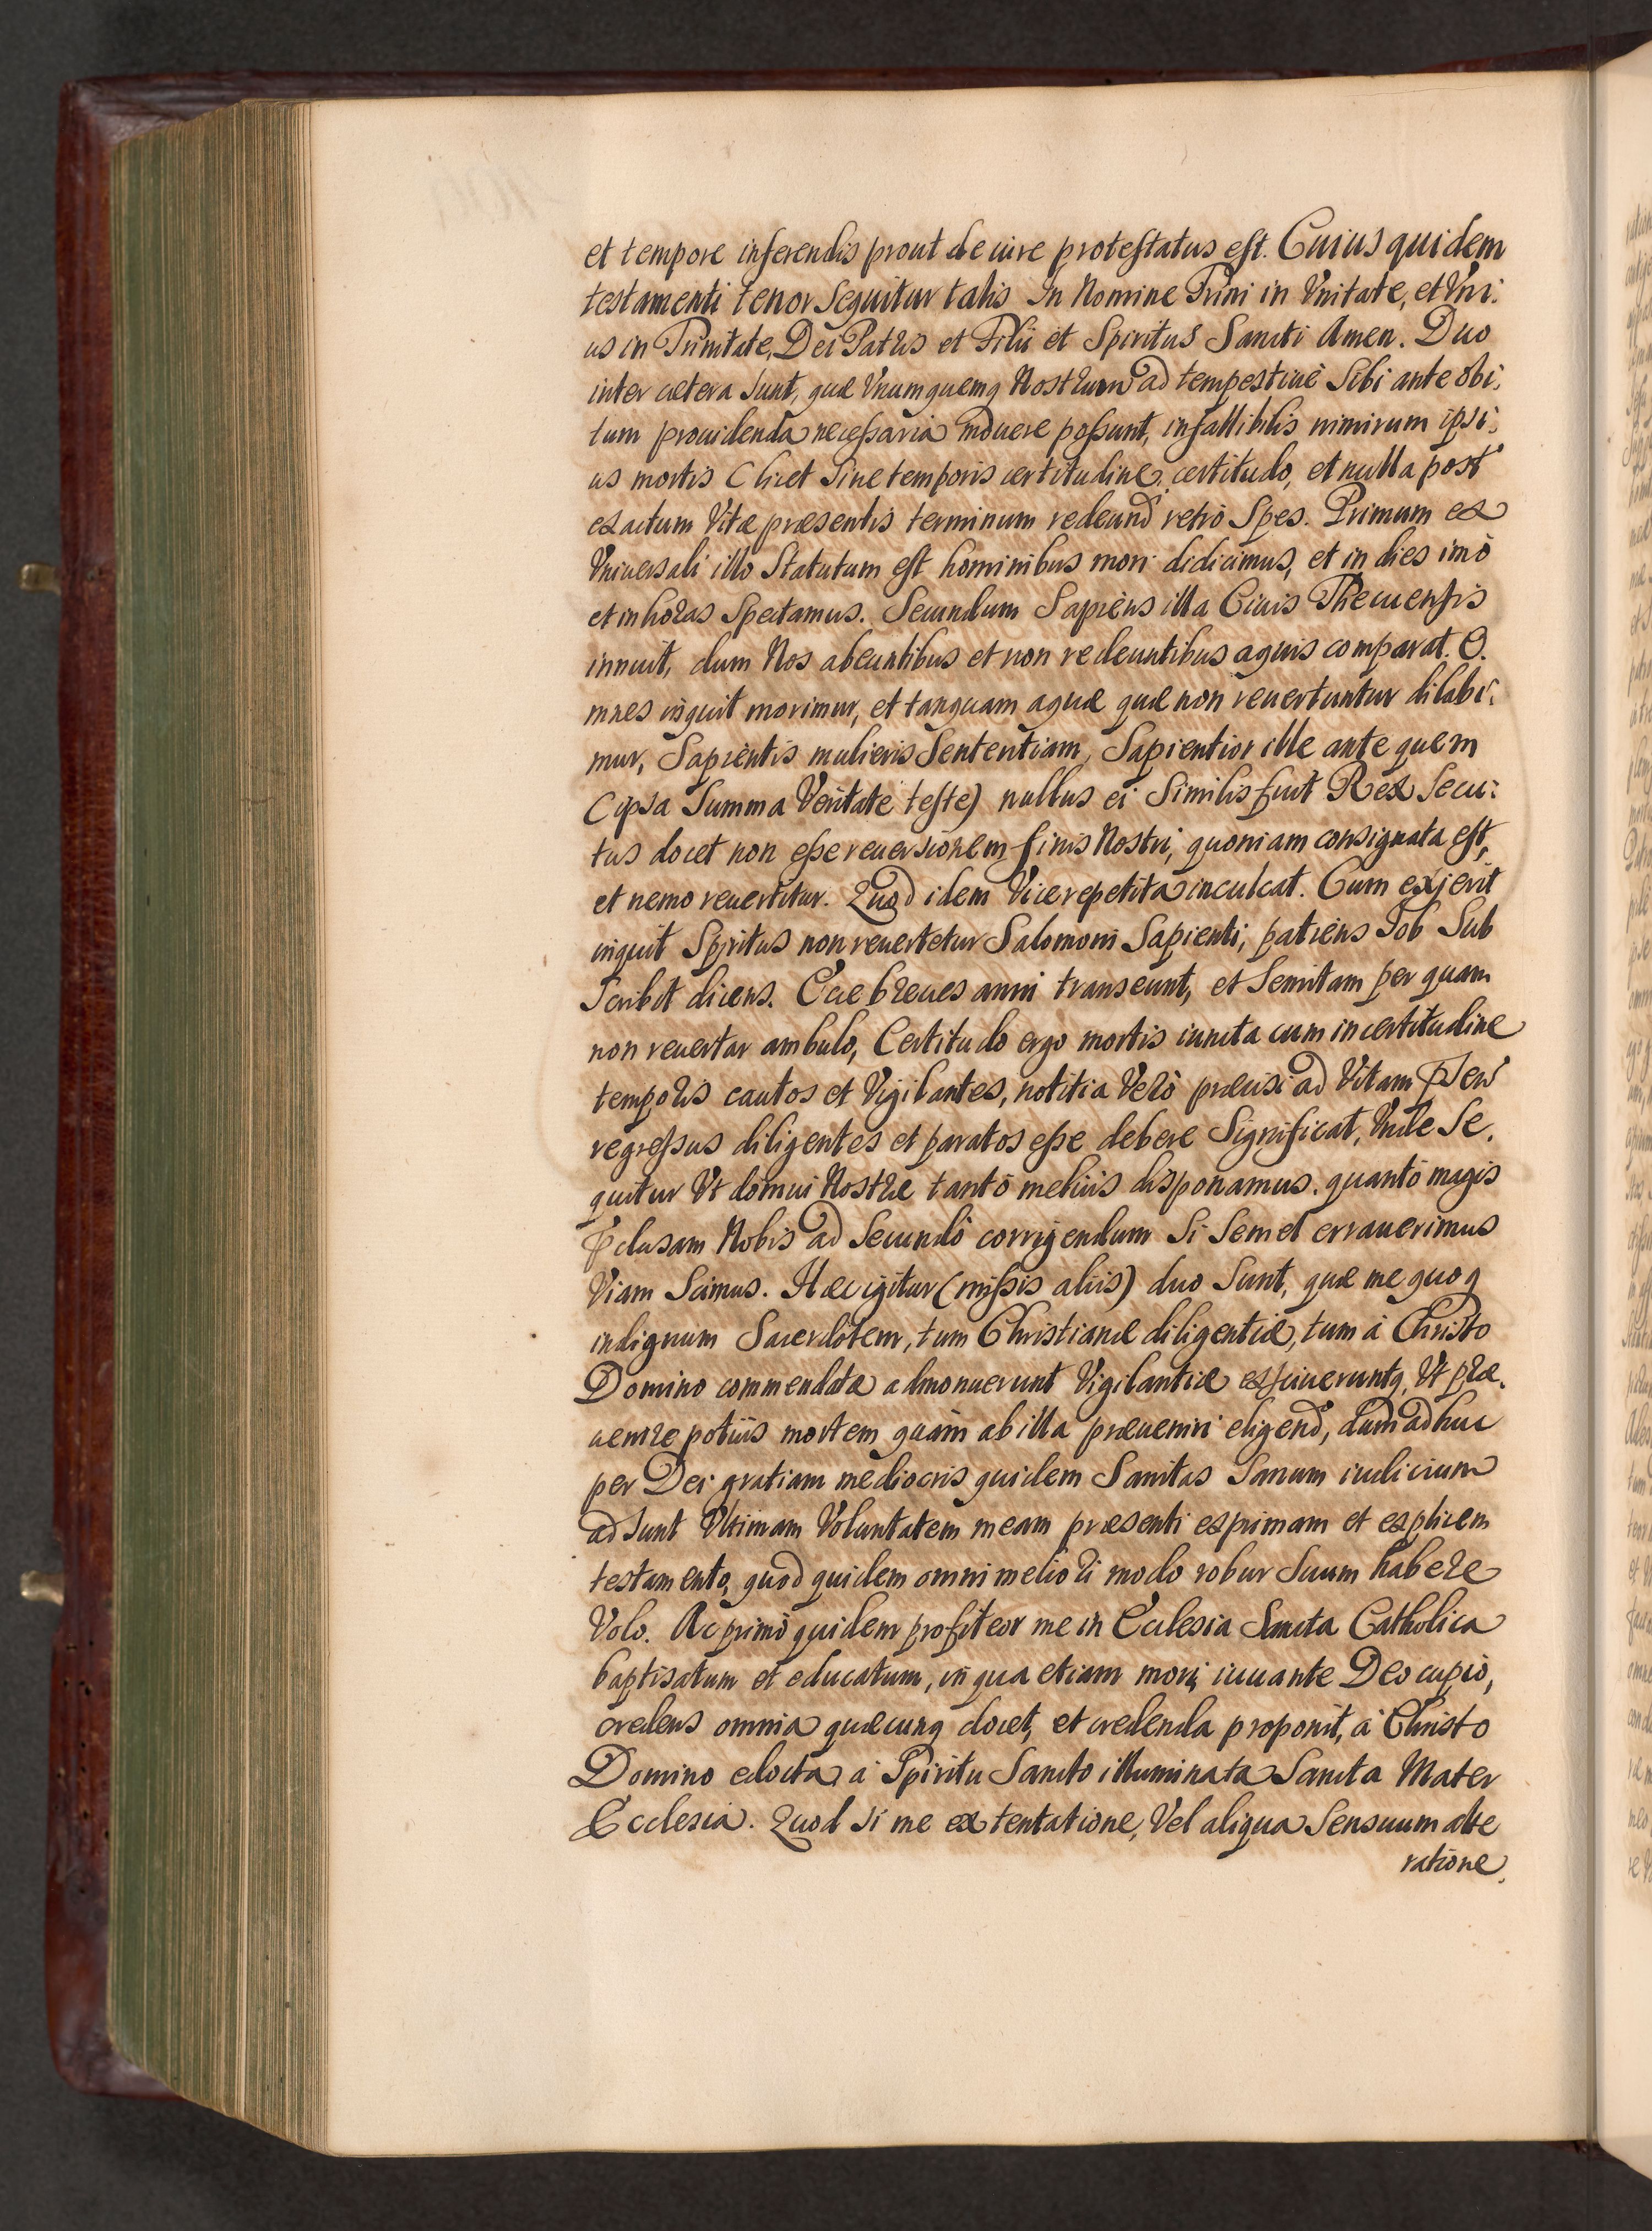 et tempore inferendis prout de iure protestatus est. Cuius quidem
testamenti tenor Sequitur talis In Nomine Trini in Vnitate, et Vni:
us in Trinitate, Dei Patris et Filii et Spiritus Sancti Amen. Duo
inter cetera Sunt, quæ Vnumquemq Nostrum ad tempestiuè Sibi ante obi:
tum prouidenda necessaria mouere possunt, infallibilis nimirum ipsi:
us mortis (licet Sine temporis certitudine) certitudo, et nulla post
exactum Vitæ præsentis terminum redeund retrò Spes. Primum ex
Vniuersali illo Statutum est hominibus mori didicimus, et in dies imò
et in horas Spectamus. Secundum Sapiens illa Ciuis Thecuensis
innuit, dum Nos abeuntibus et non redeuntibus aquis comparat. O.
mnes inquit morimur, et tanquam aquæ quæ non reuertuntur dilabi:
mur, Sapientis mulieris Sententiam, Sapientior ille ante quem
(ipsa Summa Veritate teste) nullus ei Similis fuit Rex Secu:
tus docet non esse reuersionem finis Nostri, quoniam consignata est,
et nemo reuertitur. Quod idem Vice repetita inculcat. Cum exierit
inquit Spiritus non reuertetur Salomoni Sapienti, patiens Iob Sub
Scribit dicens. Ecce breues anni transeunt, et Semitam per quam
non reuertar ambulo, Certitudo ergo mortis iuncta cum incertitudine
temporis cautos et Vigilantes, notitia Verò præcisi ad Vitam Psen
regressus diligentes et paratos esse debere Significat, Vnde Se.
quitur Vt domui Nostræ tantò meliùs disponamus. quantò magis
Pclusam Nobis ad Secundò corrigendum Si Semel errauerimus
Viam Scimus. Hæc igitur (missis aliis) duo Sunt, quæ me quoq
indignum Sacerdotem, tum Christianæ diligentiæ, tum à Christo
Domino commendatæ admonuerunt Vigilantiæ exciueruntq, Vt præ.
uenire potiùs mortem quàm ab illa præueniri eligend, dum adhuc
per Dei gratiam mediocris quidem Sanitas Sanum iudicium
adsunt Vltimam Voluntatem meam præsenti exprimam et explicem
testamento, quod quidem omni meliori modo robur Suum habere
Volo. Ac primò quidem profiteor me in Ecclesia Sancta Catholica
baptisatum et educatum, in qua etiam mori, iuuante Deo cupio,
credens omnia quæcunq docet, et credenda proponit, à Christo
Domino edocta, à Spiritu Sancto illuminata Sancta Mater
Ecclesia. Quod Si me ex tentatione, Vel aliqua Sensuum alte
ratione.